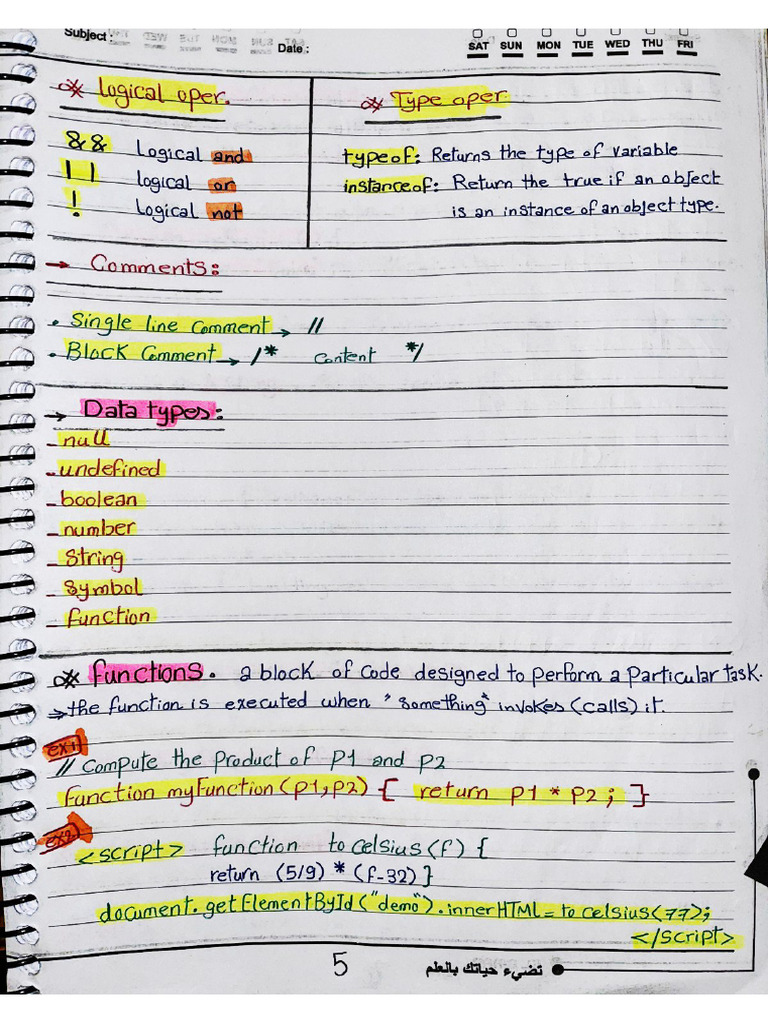 Subject:
Date:
SAT SUN MON TUE WED THU FRI
Logical oper.
&& Logical and
|| logical or
! Logical not
Type oper
typeof: Returns the type of variable
instanceof: Return the true if an object
is an instance of an object type.
→ Comments:
• Single line comment → //
• Block Comment → /* content */
→ Data types:
- null
- undefined
- boolean
- number
- String
- Symbol
- function
functions. a block of code designed to perform a particular task.
⇒ the function is executed when "something" invokes (calls) it.
ex1
// Compute the product of P1 and P2
function myFunction (p1, p2) { return p1 * p2 ; }
ex2
<script> function to celsius (f) {
return (5/9) * (f-32) }
document.getElementById("demo").innerHTML = to celsius(77);
</script>
5
تضيء حياتك بالعلم